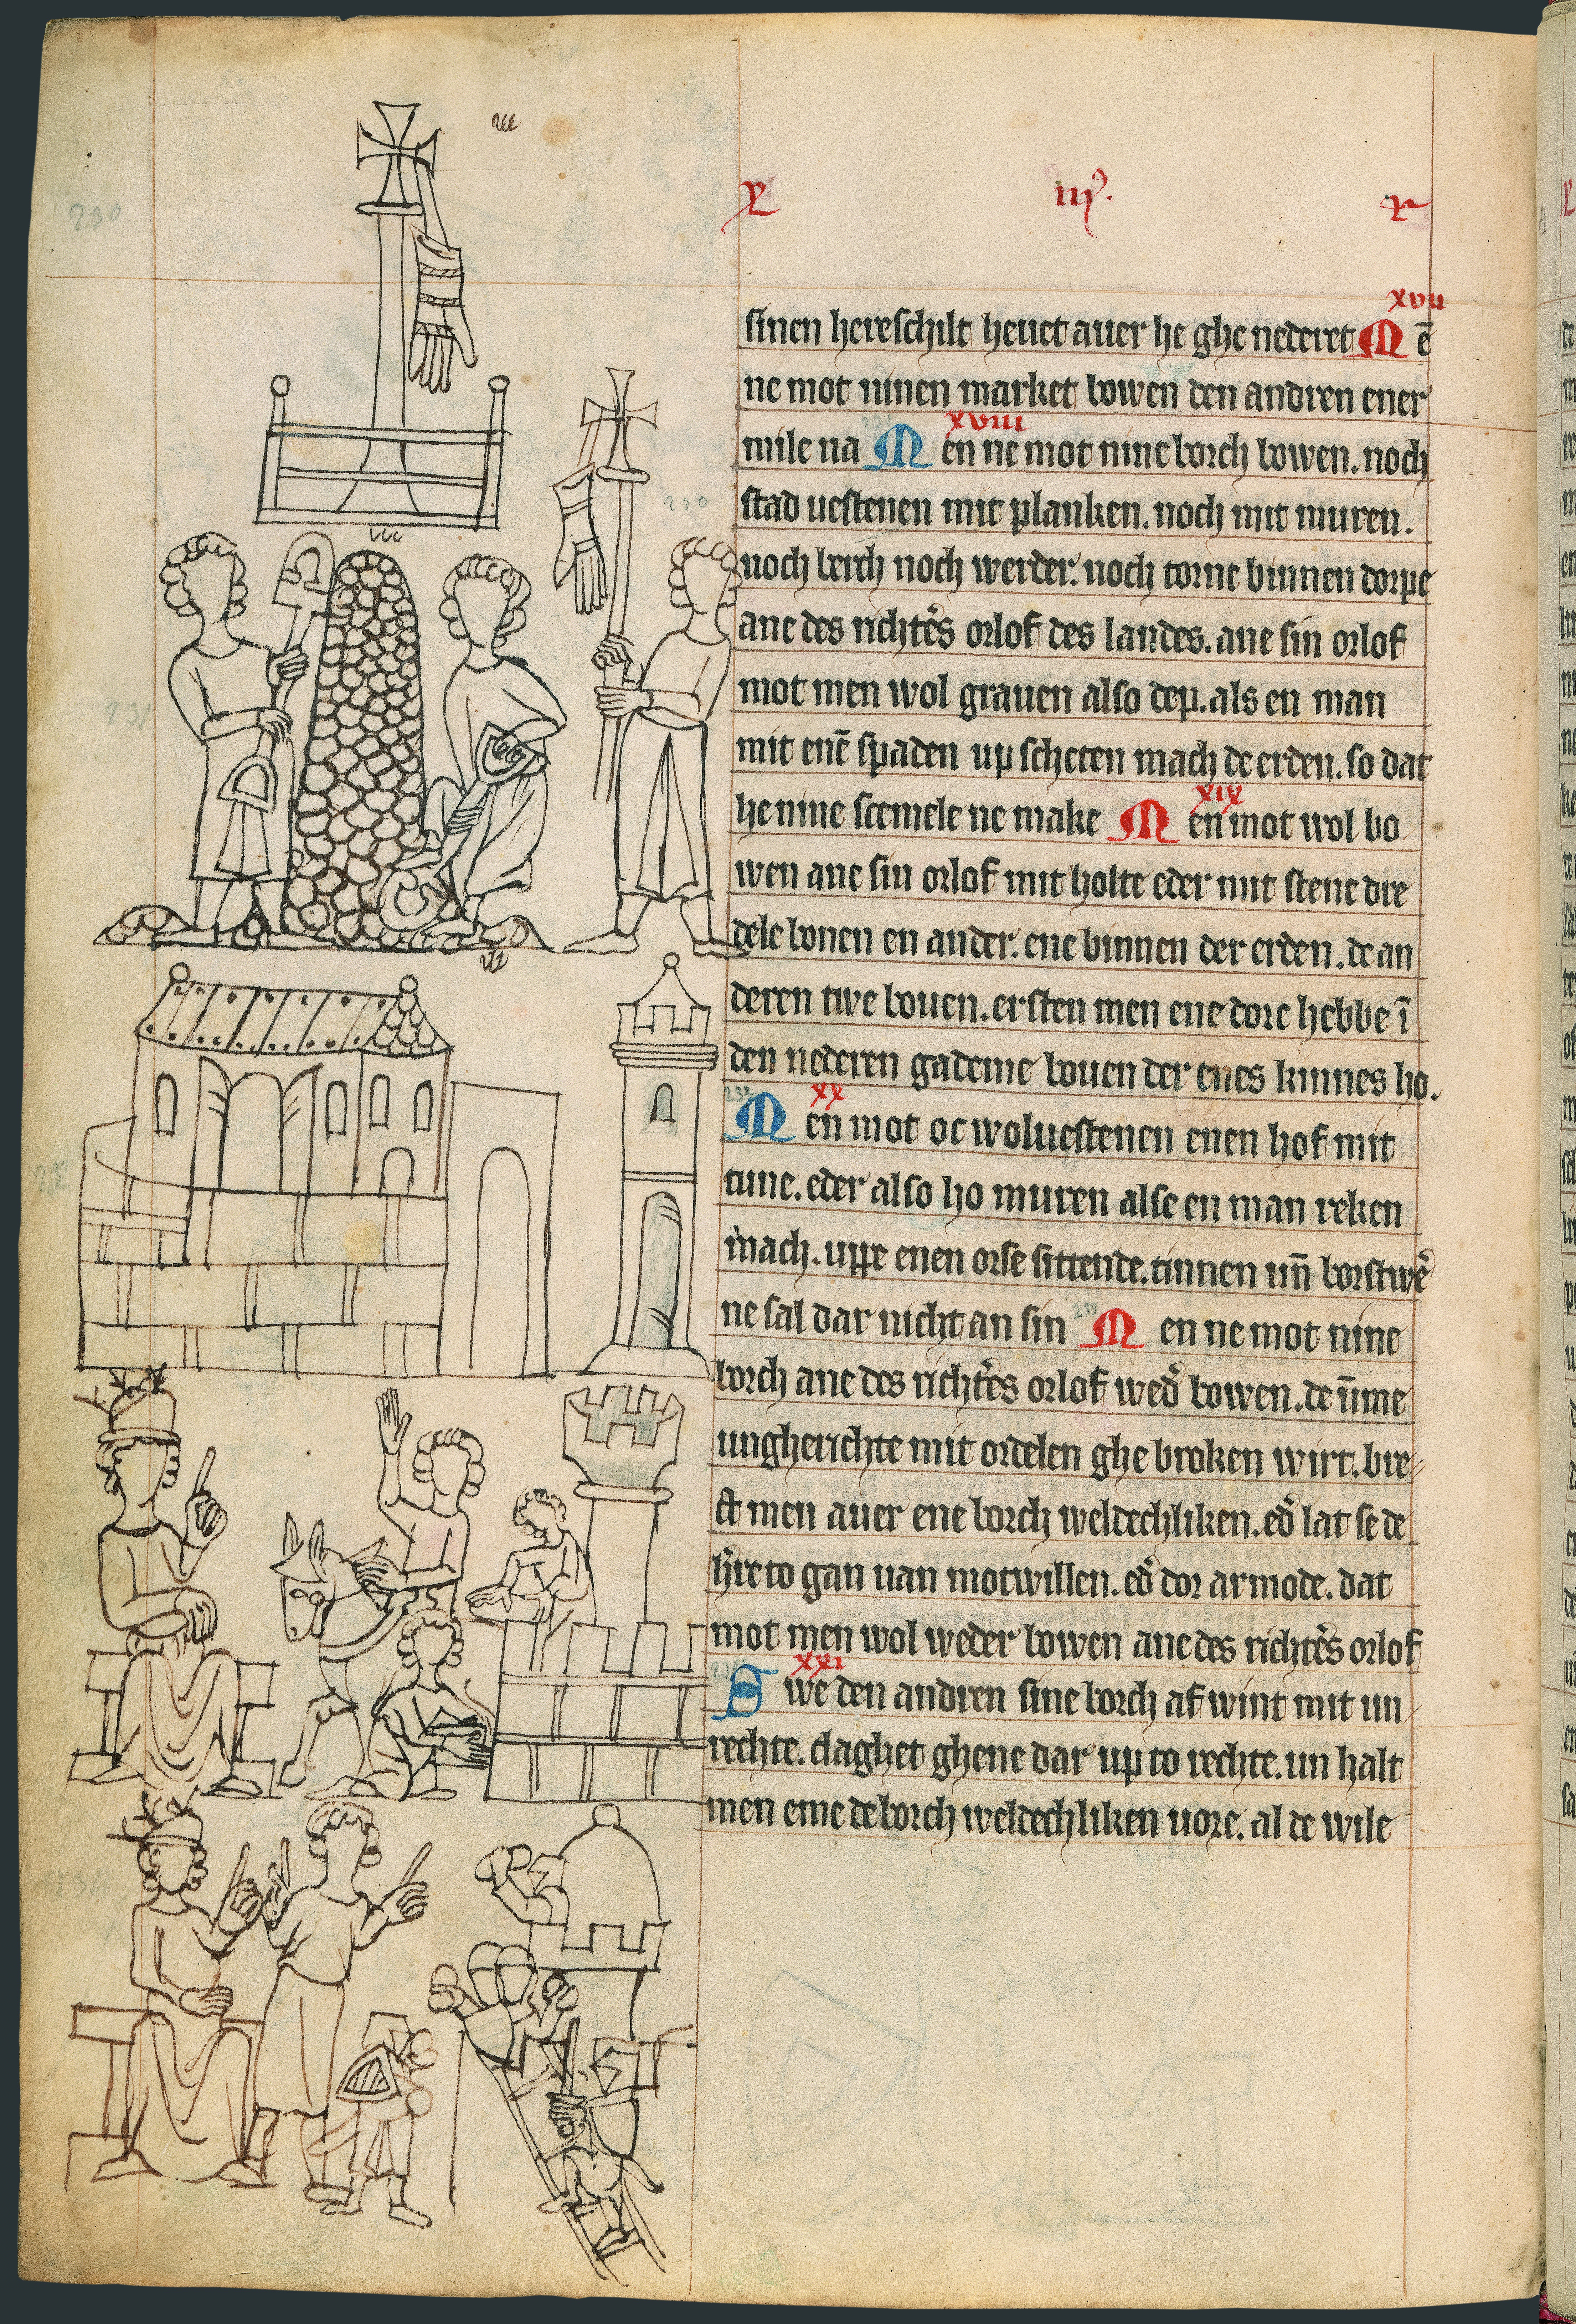 iijꝰ.
xvii
sinen hereschilt heuet auer he ghe nederet Mē
ne mot ninen market bowen den andren ener
xviii
mile na Men ne mot nine borch bowen. noch
stad uestenen mit planken. noch mit muren.
noch berch noch werder. noch torne binnen dorpe
ane des richtẽs orlof des landes. ane sin orlof
mot men wol grauen also dep. als en man
mit enē spaden up scheten mach de erden. so dat
xix
he nine scemele ne make Men mot wol bo
wen ane sin orlof mit holte eder mit stene dre
dele bouen en ander. ene binnen der erden. de an
deren twe bouen. er sten men ene dore hebbe ī
den nederen gademe bouen der enes kinnes ho.
xx
Men mot oc wol uestenen enen hof mit
tune. eder also ho muren alse en man reken
mach. uppe enen orse sittende. tinnen un̄ borstwẽ
ne sal dar nicht an sin Men ne mot nine
borch ane des richtẽs orlof wed̓ bowen. de ūme
ungherichte mit ordelen ghe broken wirt. bre
ct men auer ene borch weldechliken. ed̓ lat se de
h̓re to gan uan motwillen. ed̓ dor armode. dat
mot men wol weder bowen ane des richtẽs orlof
xxi
Swe den andren sine borch af wint mit un
rechte. claghet ghene dar up to rechte. un halt
men eme de borch weldechliken uore. al de wile